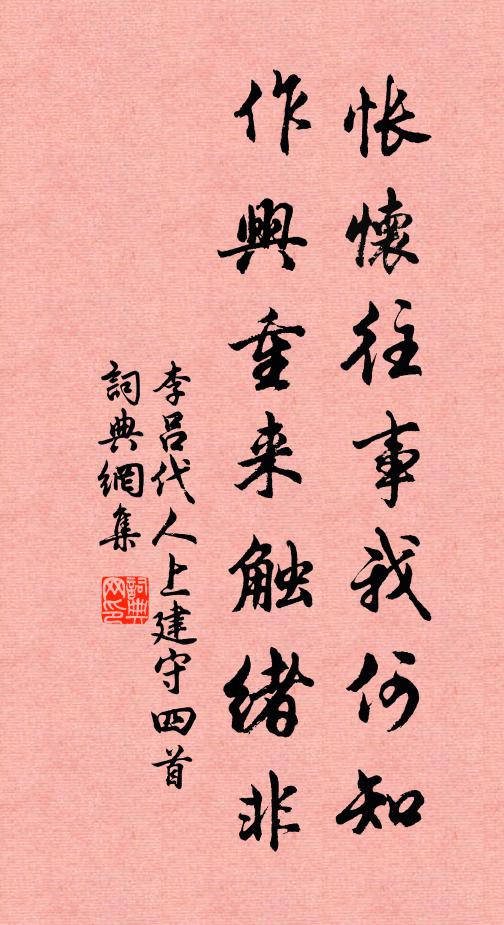 怅懷往事我何知
作興重来触緒非
李呂代人上建守四首
詞典網集
詞典网印